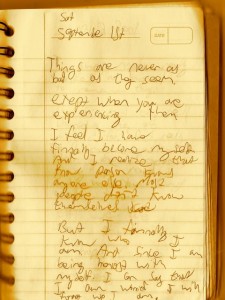 Sat
September 1st
Things are never as
bad as they seem
except when you are
experiencing them
I feel I have
finally became my self
And I realize that
than
anyone else, most
people don't know
themselves
But I finally
know who I
am. And since I am
being honest with
myself I can say that
I am and I will
I am.